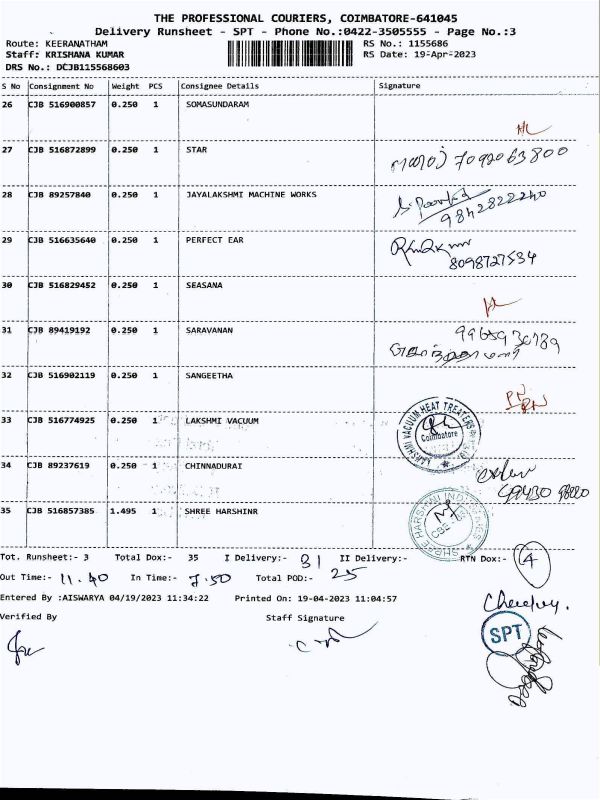 THE PROFESSIONAL COURIERS, COIMBATORE-641045
Delivery Runsheet - SPT - Phone No.:0422-3505555 - Page No.:3
Route: KEERANATHAM RS No.: 1155686
Staff: KRISHANA KUMAR RS Date: 19-Apr-2023
DRS No.: DCJB115568603
S No Consignment No Weight PCS Consignee Details Signature
26 CJB 516900857 0.250 1 SOMASUNDARAM
27 CJB 516872899 0.250 1 STAR 7092063800
28 CJB 89257840 0.250 1 JAYALAKSHMI MACHINE WORKS
9842822240
29 CJB 516635640 0.250 1 PERFECT EAR
8098727534
30 CJB 516829452 0.250 1 SEASANA
31 CJB 89419192 0.250 1 SARAVANAN
32 CJB 516902119 0.250 1 SANGEETHA
33 CJB 516774925 0.250 1 LAKSHMI VACUUM LAKSHMI VACUUM HEAT TREATERS Coimbatore
34 CJB 89237619 0.250 1 CHINNADURAI
35 CJB 516857385 1.495 1 SHREE HARSHINR
Tot. Runsheet:- 3 Total Dox:- 35 I Delivery:- 31 II Delivery:- RTN Dox:- 4
Out Time:- 11.40 In Time:- 7.50 Total POD:- 25
Entered By :AISWARYA 04/19/2023 11:34:22 Printed On: 19-04-2023 11:04:57
Verified By Staff Signature
SPT